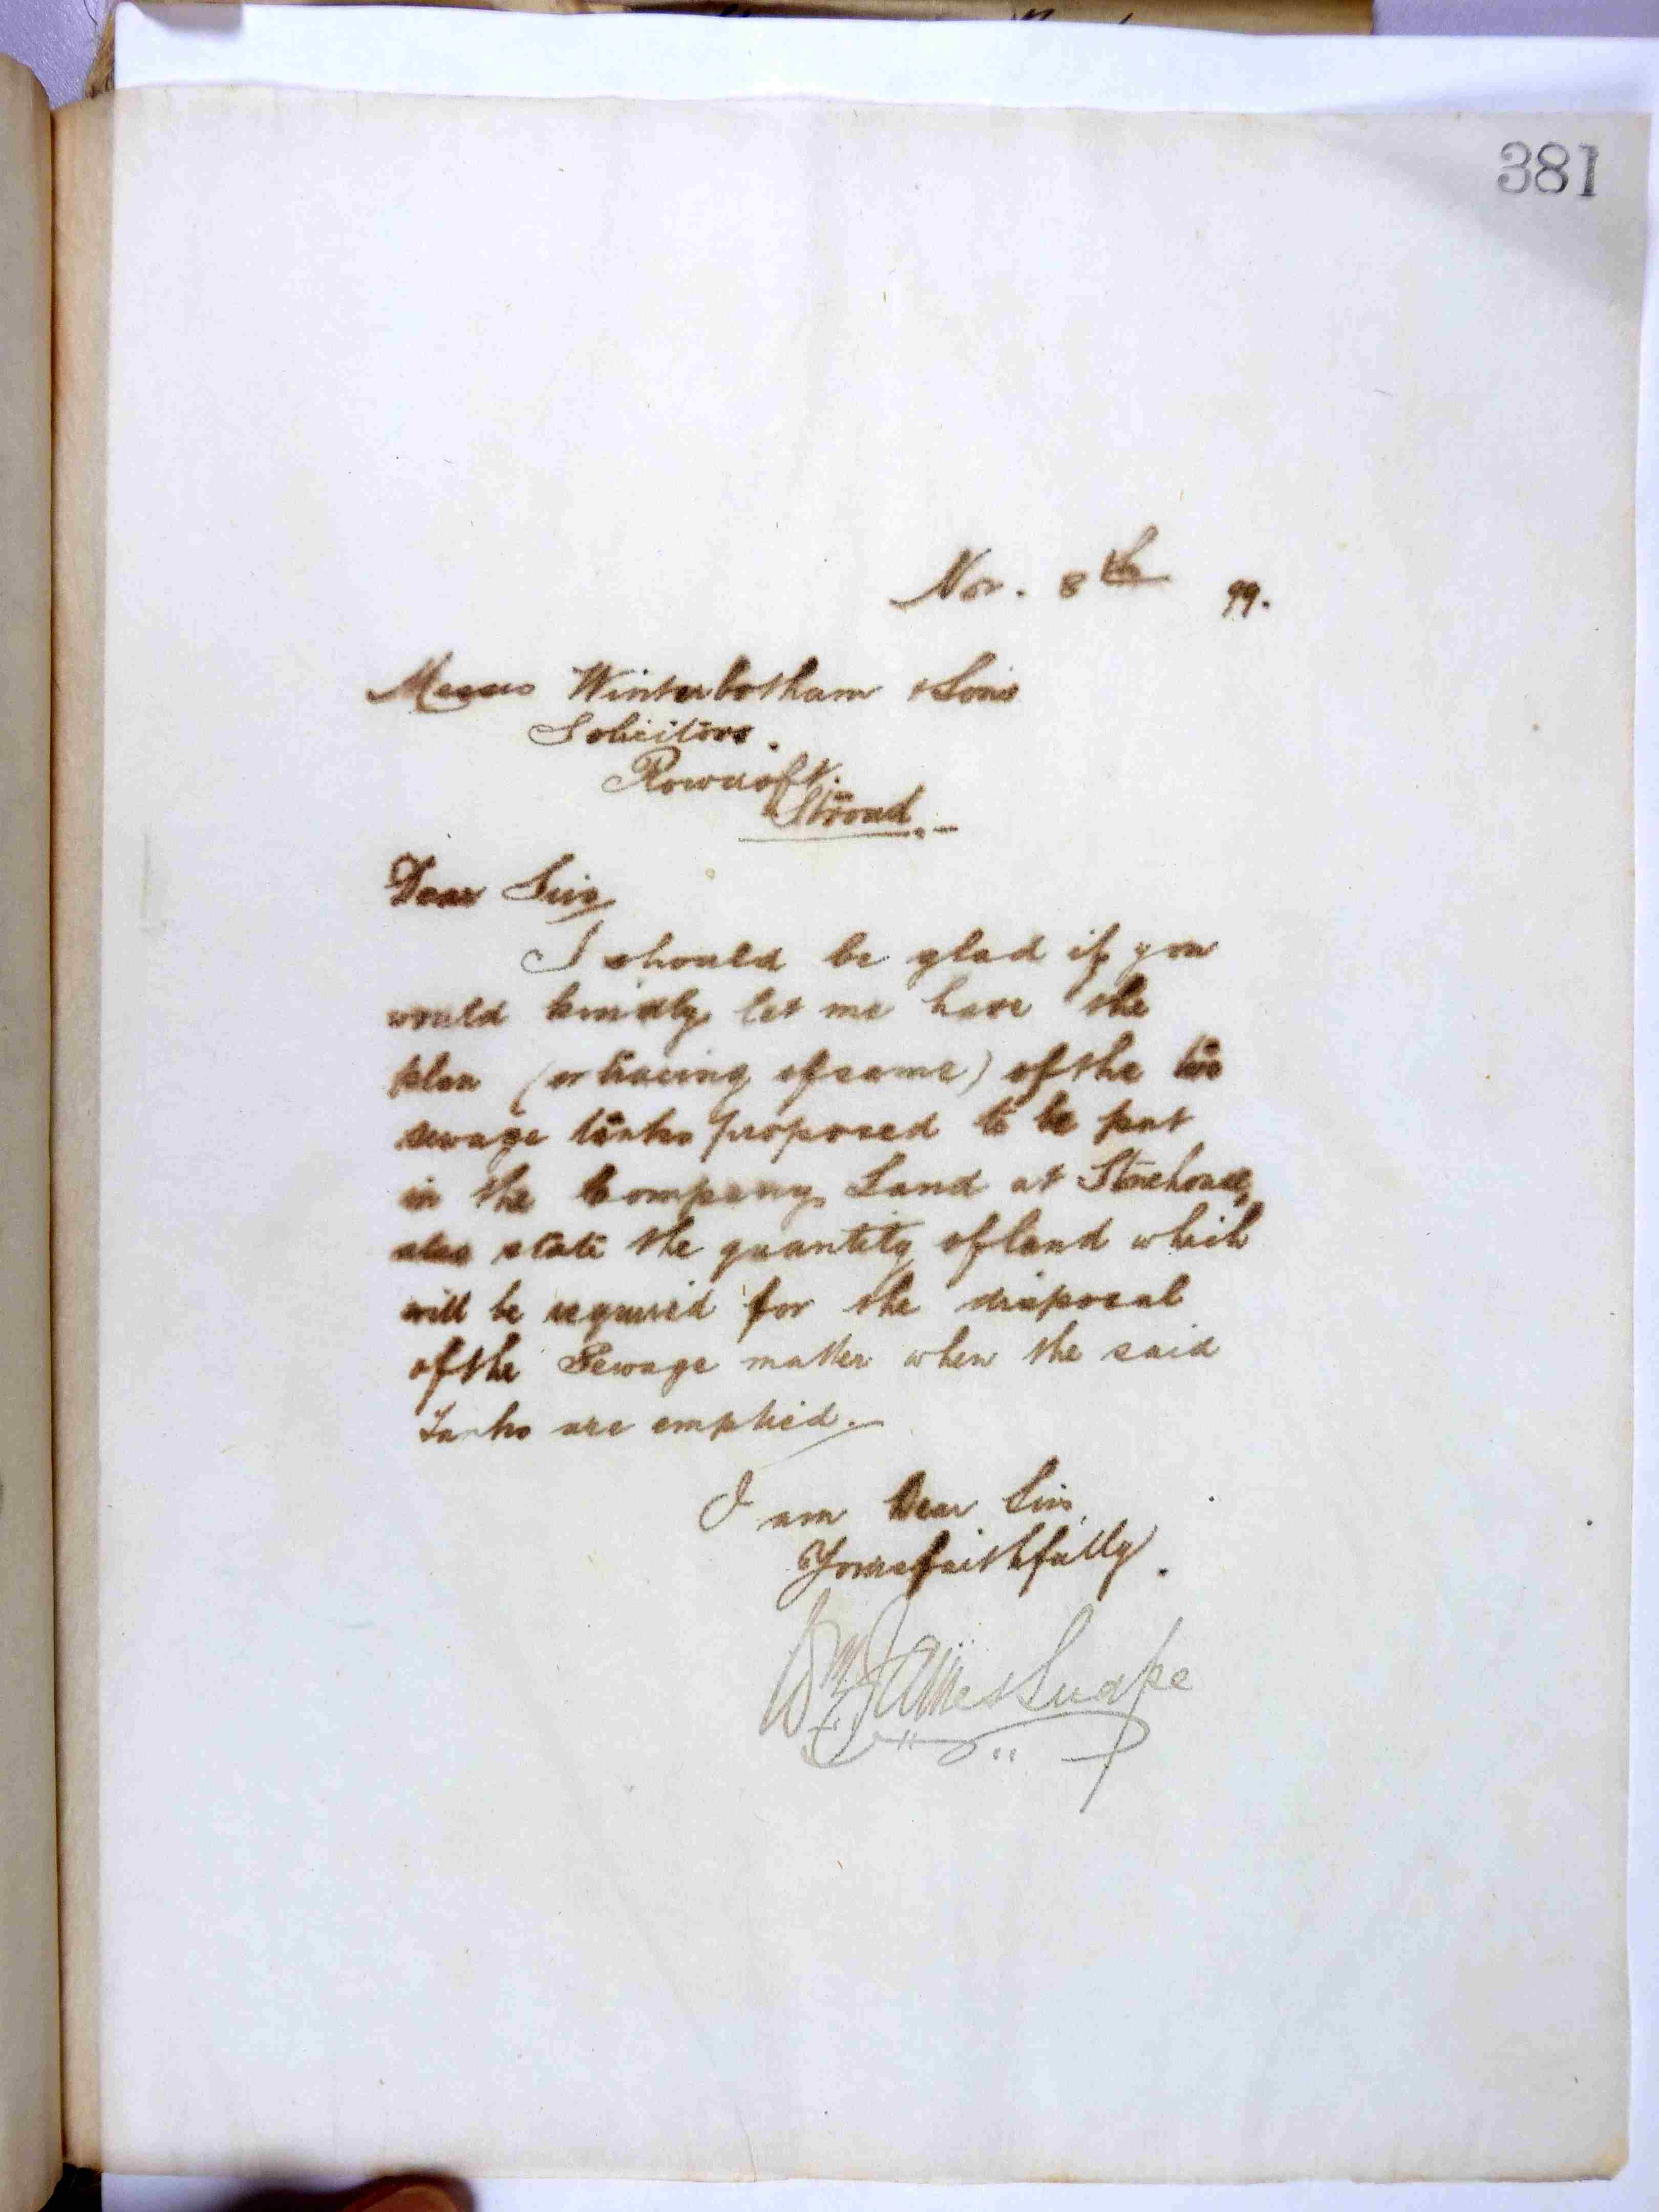 381
Nov. 8th 99.
Messrs Winterbotham & Sons
Solicitors.
Rowcroft.
Stroud.-
Dear Sirs,
I should be glad if you
would kindly let me have the
plan (or tracing of same) of the two
sewage tanks proposed to be put
in the Companys Land at Stonehouse,
also state the quantity of land which
will be required for the disposal
of the Sewage matter when the said
Tanks are emptied.-
I am Dear Sirs,
Yours faithfully.
Wm James Snape